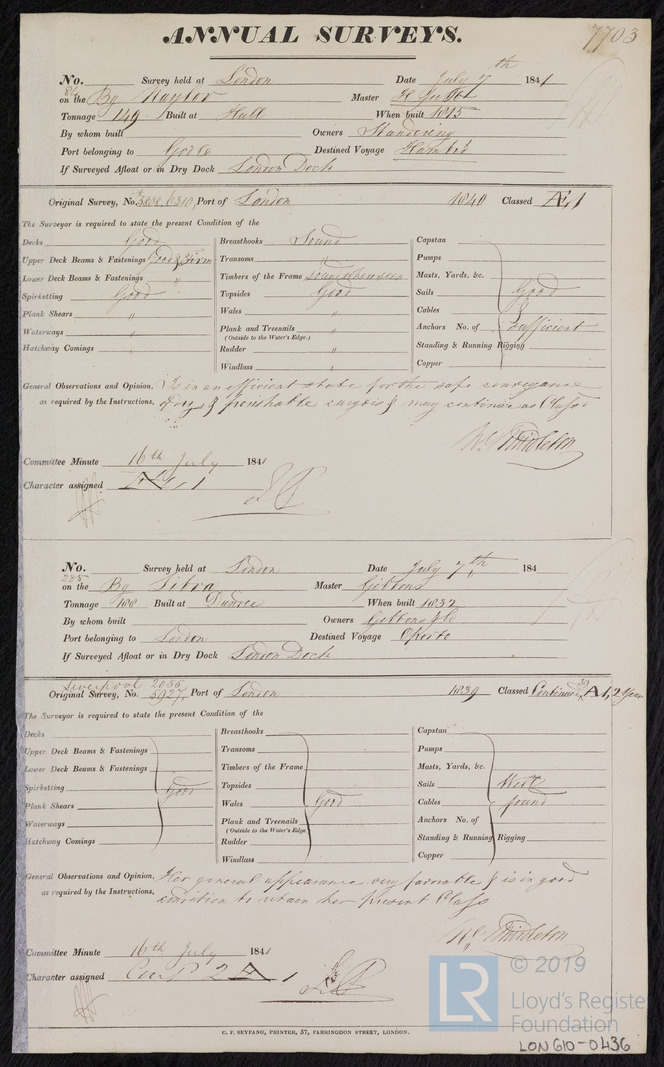 ANNUAL SURVEYS.
7703
No. Survey held at London Date July 7th 1841
on the Bg Naylor Master
Tonnage 149 Built at Hull When built 1815
By whom built Owners Standering
Port belonging to Goole Destined Voyage Humber
If Surveyed Afloat or in Dry Dock London Dock
Original Survey, No. 6310 Port of London 1840 Classed Æ1
The Surveyor is required to state the present Condition of the
Decks Good
Upper Deck Beams & Fastenings Good & Firm
Lower Deck Beams & Fastenings "
Spirketting Good
Plank Shears "
Waterways "
Hatchway Comings "
Breasthooks Sound
Transoms "
Timbers of the Frame Sound where seen
Topsides Good
Wales "
Plank and Treenails "
(Outside to the Water's Edge.)
Rudder "
Windlass "
Capstan
Pumps
Masts, Yards, &c.
Sails Good
Cables &
Anchors No. of Sufficient
Standing & Running Rigging
Copper
General Observations and Opinion, Is in an efficient state for the safe conveyance
as required by the Instructions, of dry & perishable cargoes & may continue as Class'd
Wm Middleton
Committee Minute 16th July 1841
Character assigned Æ 1
No. Survey held at London Date July 7th 184
285
on the Bg Libra Master Gibbons
Tonnage 188 Built at Dundee When built 1832
By whom built Owners Gibbons & Co
Port belonging to London Destined Voyage Oporto
If Surveyed Afloat or in Dry Dock London Dock
Liverpool 2055
Original Survey, No. 5927 Port of London 1839 Classed Continued A1, 2 Years
The Surveyor is required to state the present Condition of the
Decks
Upper Deck Beams & Fastenings
Lower Deck Beams & Fastenings
Spirketting Good
Plank Shears
Waterways
Hatchway Comings
Breasthooks
Transoms
Timbers of the Frame
Topsides
Wales Good
Plank and Treenails
(Outside to the Water's Edge
Rudder
Windlass
Capstan
Pumps
Masts, Yards, &c.
Sails Well
Cables found
Anchors No. of
Standing & Running Rigging
Copper
General Observations and Opinion, Her general appearance very favorable & is in good
as required by the Instructions, condition to retain her present Class
Wm Middleton
Committee Minute 16th July 1841
Character assigned Cont'd 2 A 1
C. F. SEYFANG, PRINTER, 57, FARRINGDON STREET, LONDON.
LR © 2019
Lloyd's Register
Foundation
LON610-0436